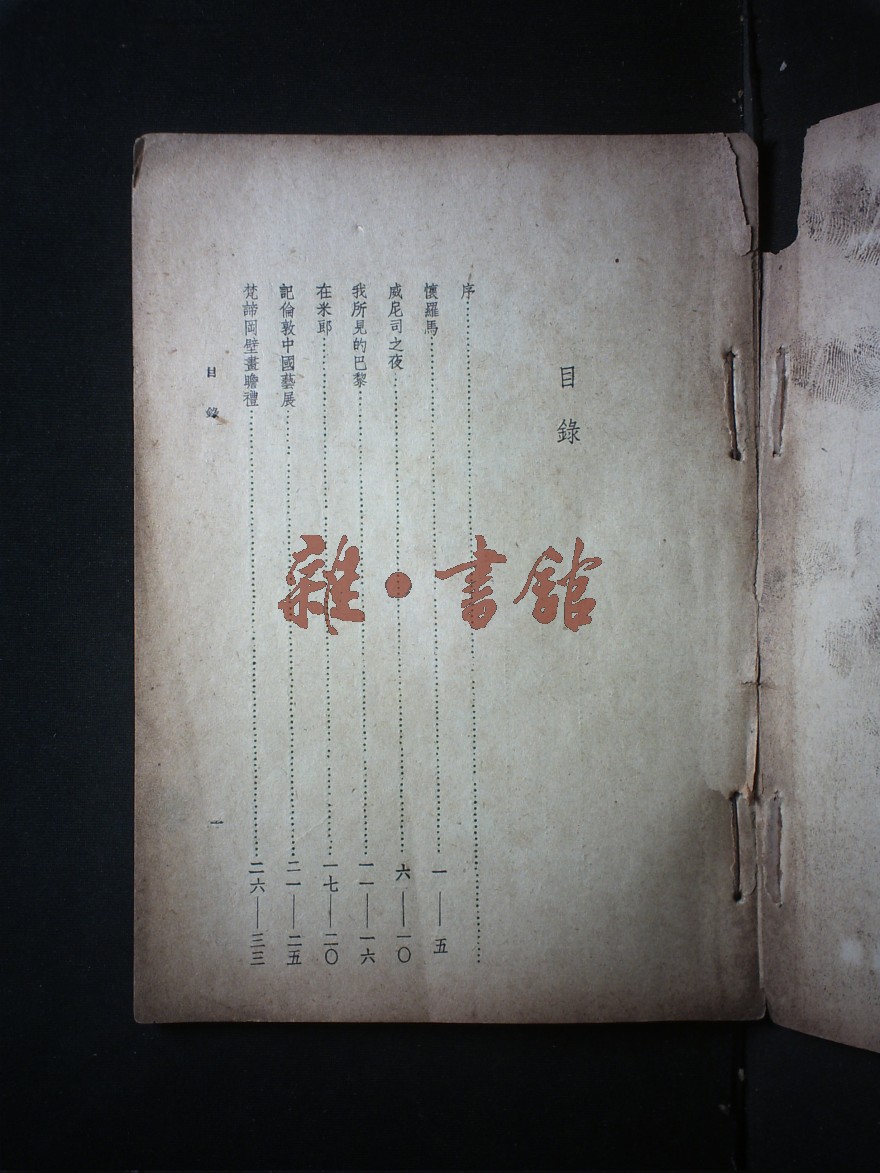 目錄
序
懷羅馬 一——五
威尼司之夜 六——一〇
我所見的巴黎 一一——一六
在米郎 一七——二〇
記倫敦中國藝展 二一——二五
梵諦岡壁畫瞻禮 二六——三三
目錄 一
雜·書館